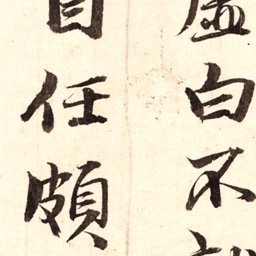 虛白不
自任頗